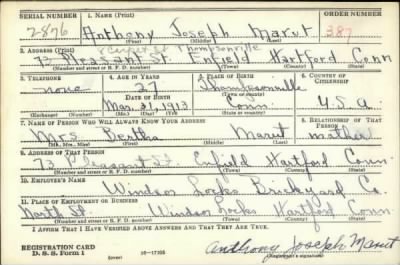 SERIAL NUMBER 1. NAME (Print) ORDER NUMBER
2876 Anthony Joseph Marut 387
(First) (Middle) (Last)
Thompsonville
2. ADDRESS (Print)
73 Pleasant St. Enfield Hartford Conn
(Number and street or R. F. D. number) (Town) (County) (State)
3. TELEPHONE 4. AGE IN YEARS 5. PLACE OF BIRTH 6. COUNTRY OF CITIZENSHIP
none 27 Thompsonville
DATE OF BIRTH (Town or county)
Mar. 31, 1913 Conn. U.S.A.
(Exchange) (Number) (Mo.) (Day) (Yr.) (State or country)
7. NAME OF PERSON WHO WILL ALWAYS KNOW YOUR ADDRESS 8. RELATIONSHIP OF THAT PERSON
Mrs Bertha Marut mother
(Mr., Mrs., Miss) (First) (Middle) (Last)
9. ADDRESS OF THAT PERSON
73 Pleasant St. Enfield Hartford Conn.
(Number and street or R. F. D. number) (Town) (County) (State)
10. EMPLOYER'S NAME
Windsor Locks Brickyard Co.
11. PLACE OF EMPLOYMENT OR BUSINESS
North St. Windsor Locks Hartford Conn.
(Number and street or R. F. D. number) (Town) (County) (State)
I AFFIRM THAT I HAVE VERIFIED ABOVE ANSWERS AND THAT THEY ARE TRUE.
REGISTRATION CARD
D. S. S. Form 1 (over) 16—17105 Anthony Joseph Marut
(Registrant's signature)